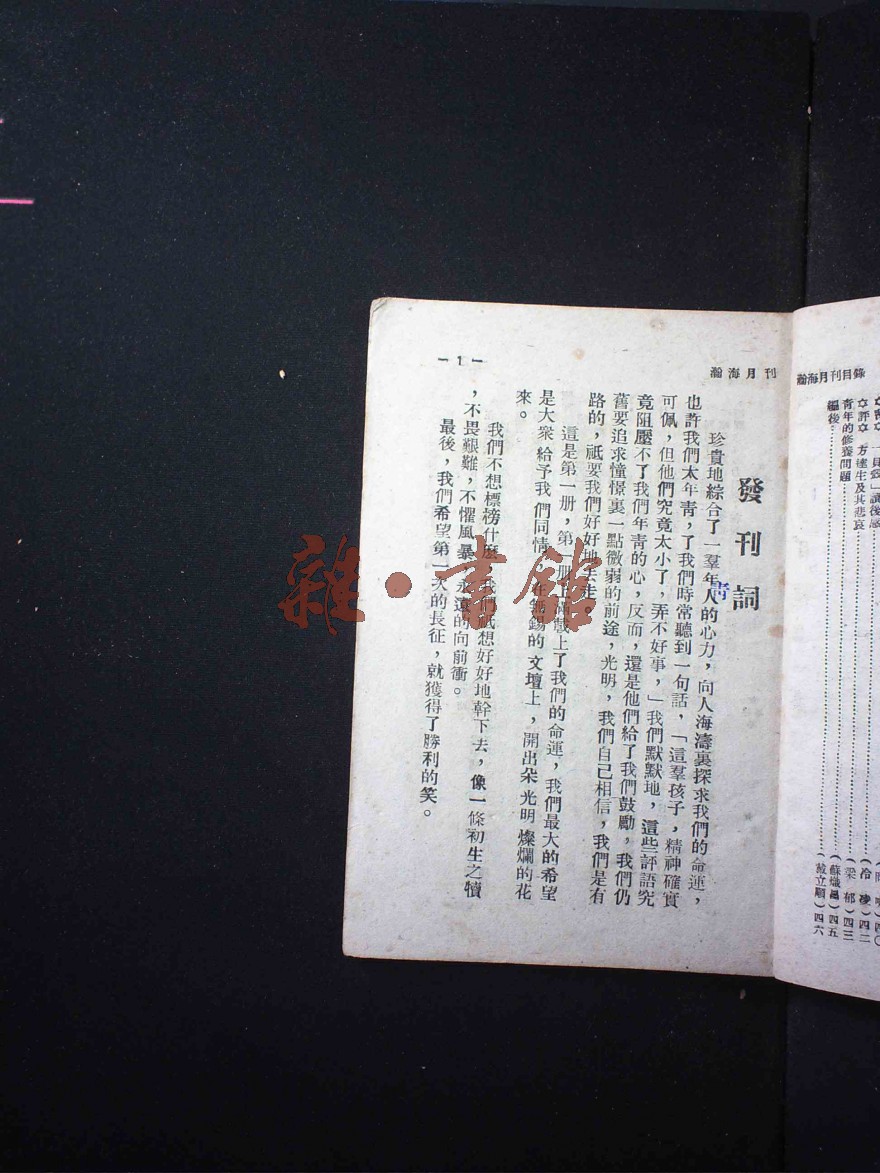 瀚海月刊目錄
青年的修養問題
編後
(冷凌)四二
(梁郁)四三
四五
(戴立順)四六
瀚海月刊
發刊詞
珍貴地綜合了一羣年人的心力,向人海濤裏探求我們的命運,
青
也許我們太年青,了我們時常聽到一句話,「這羣孩子,精神確實
可佩,但他們究竟太小了,弄不好事,」我們默默地,這些評語究
竟阻壓不了我們年青的心,反而,還是他們給了我們鼓勵,我們仍
舊要追求憧憬裏一點微弱的前途,光明,我們自己相信,我們是有
路的,祇要我們好好地去走。
這是第一册,第一册上滿載上了我們的命運,我們最大的希望
是大衆給予我們同情,在無錫的文壇上,開出朵光明燦爛的花
來。
我們不想標榜什麼,我們祇想好好地幹下去,像一條初生之犢
,不畏艱難,不懼風暴,永遠的向前衝。
最後,我們希望第一次的長征,就獲得了勝利的笑。
—1—
雜·書館